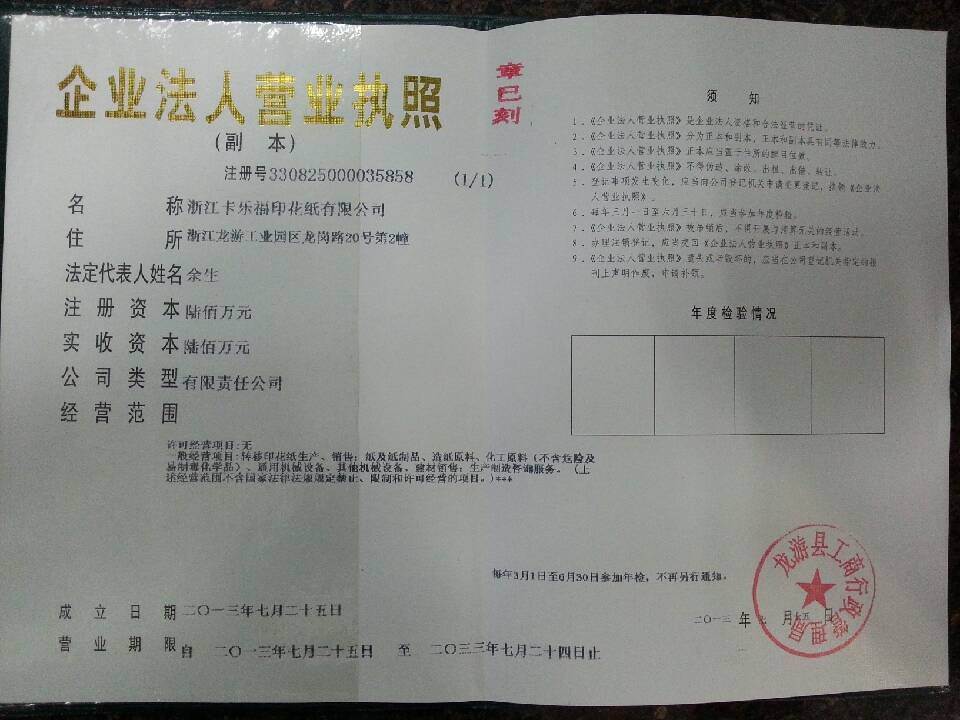 企业法人营业执照
(副 本)
注册号330825000035858 (1/1)
章已刻
名 称 浙江卡乐福印花纸有限公司
住 所 浙江龙游工业园区龙岗路20号第2幢
法定代表人姓名 余生
注册资本 陆佰万元
实收资本 陆佰万元
公司类型 有限责任公司
经营范围
许可经营项目:无
一般经营项目:转移印花纸生产、销售;纸及纸制品、造纸原料、化工原料(不含危险及
易制毒化学品)、通用机械设备、其他机械设备、建材销售;生产制造咨询服务。(上
述经营范围不含国家法律法规规定禁止、限制和许可经营的项目。)***
成立日期 二〇一三年七月二十五日
营业期限 自 二〇一三年七月二十五日 至 二〇三三年七月二十四日止
须 知
1.《企业法人营业执照》是企业法人资格和合法经营的凭证。
2.《企业法人营业执照》分为正本和副本,正本和副本具有同等法律效力。
3.《企业法人营业执照》正本应当置于住所的醒目位置。
4.《企业法人营业执照》不得伪造、涂改、出租、出借、转让。
5.登记事项发生变化,应当向公司登记机关申请变更登记,换领《企业法
人营业执照》。
6.每年三月一日至六月三十日,应当参加年度检验。
7.《企业法人营业执照》被吊销后,不得开展与清算无关的经营活动。
8.办理注销登记,应当交回《企业法人营业执照》正本和副本。
9.《企业法人营业执照》遗失或者毁坏的,应当在公司登记机关指定的报
刊上声明作废,申请补领。
年度检验情况
每年3月1日至6月30日参加年检,不再另行通知。
龙游县工商行政管理局
二〇一三 年 七 月 廿五 日